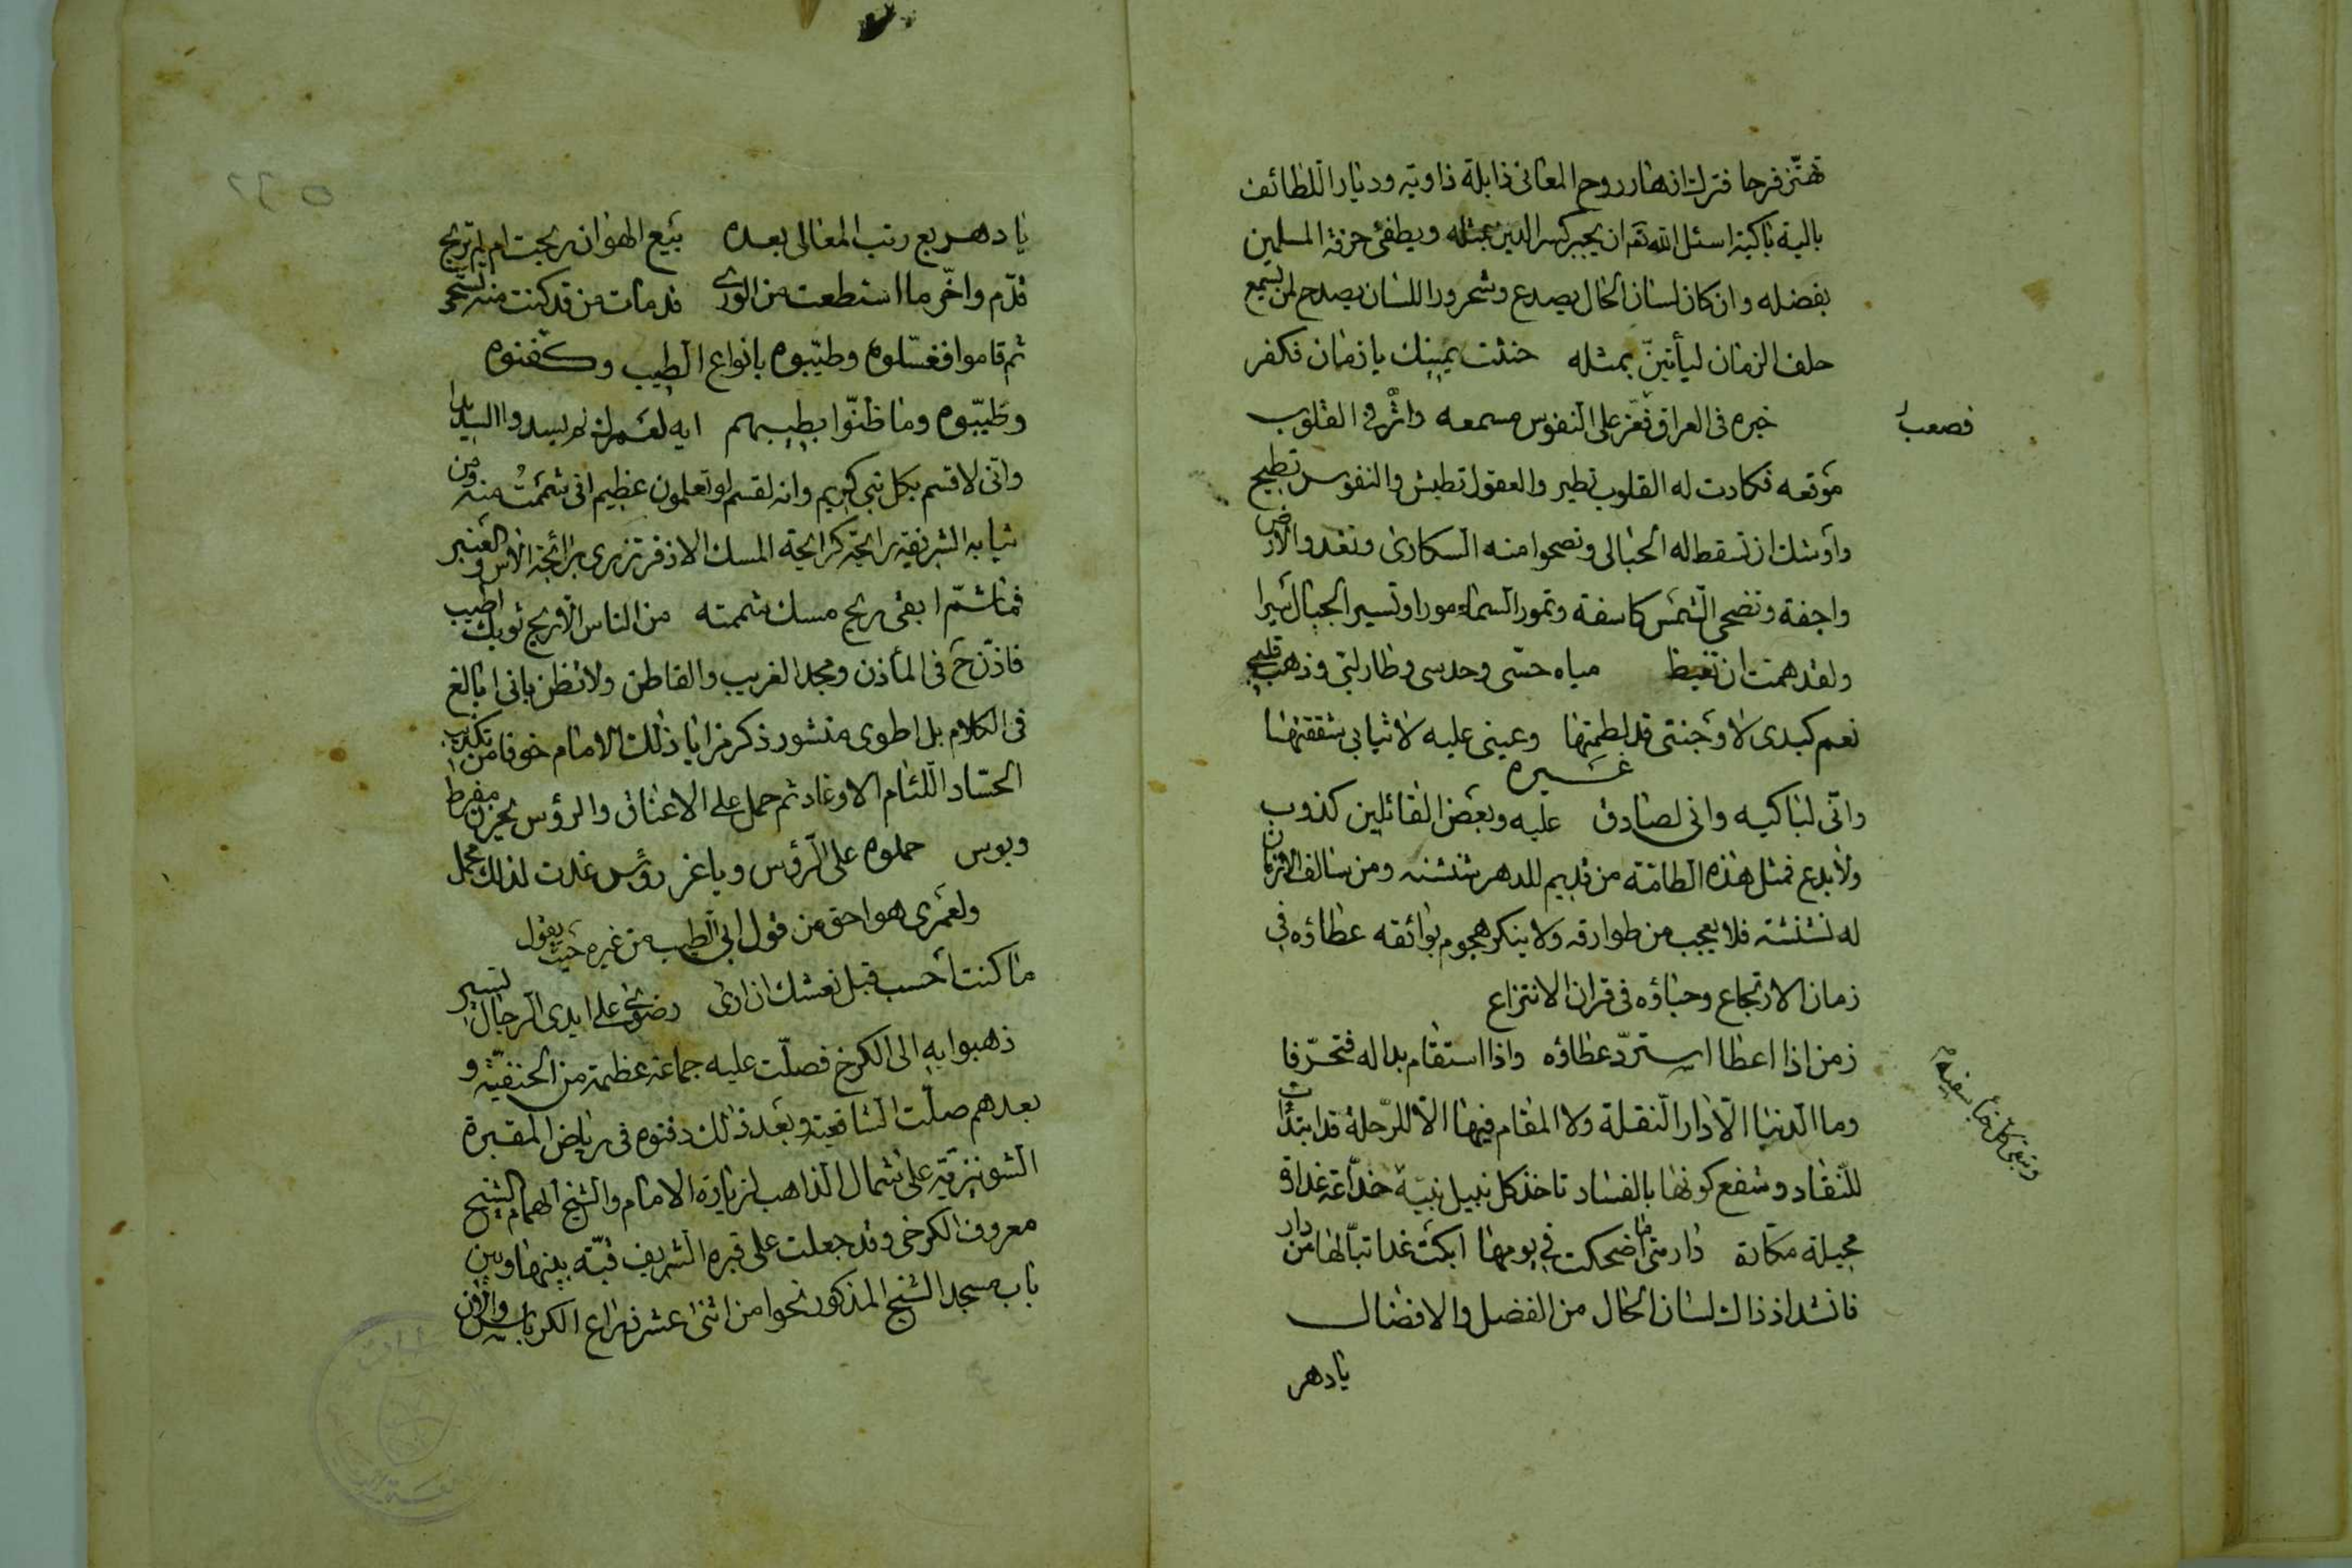 تهتز فرحا فترك ازهار روح المعانى ذابلة ذاوية وديار اللطائف
بالية باكية اسئل الله تعم ان يجبر كسر الدين بمثله ويطفئ حرقة المسلمين
بفضله وان كان لسان الحال يصدع وشحرور اللسان يصدح لمن يسمع
حلف الزمان ليأتينّ بمثله حنثت يمينك يا زمان فكفر
فصعب خبره فى العراق فعزّ على النفوس مسمعه واثر فى القلوب
موقعه فكادت له القلوب تطير والعقول تطيش والنفوس تطيح
واوشك ان تسقط له الحبالى وتصحوا منه السكارى وتغدو الارض
واجفة وتضحى الشمس كاسفة وتمور السماء مورا وتسير الجبال سيرا
ولقد همت ان تغيظ مياه حسّى وحدسى وطار لبّى وذهب قلبى
نعم كبدى لا وجنتى قد لطمتها وعينى عليه لا ثيابى شققتها
غيره
وانّى لباكيه وانى لصادق عليه وبعض القائلين كذوب
ولا بدع فمثل هذه الطامّة من قديم للدهر شنشنه ومن سالف الازمان
له نشنشة فلا يعجب من طوارقه ولا ينكر هجوم بوائقه عطاؤه فى
زمان الارتجاع وحباؤه فى قران الانتزاع
زمن اذا اعطا استردّ عطاؤه واذا استقام بدا له فتحرّفا
وما الدنيا الّا دار النقلة ولا المقام فيها الّا للرّحلة قد ابتدأت
للنّفاد وشفع كونها بالفساد تاخذ كل نبيل نبيّه خدّاعة غدارة
محيلة مكارة دار متى ما اضحكت فى يومها ابكت غدا تبّا لها من دار
فانشد اذ ذاك لسان الحال من الفضل والافضال
يا دهر
يا دهر بع رتب المعالى بعده بيع الهوان ربحت ام لم تربح
قدّم واخّر ما استطعت من الورى قد مات من قد كنت منه تستحى
ثم قاموا فغسّلوه وطيّبوه بانواع الطيب وكفنوه
وطيّبوه وما ظنّوا بطيبهم
وانّى لاقسم بكل نبى كريم وانه لقسم لو تعلمون عظيم انى شممت منه ومن
ثيابه الشريفة رائحة كرائحة المسك الاذفر تزرى برائحة الاس والعنبر
فما شمّ ابقى ريح مسك شممته من الناس الّا ريح ثوبك اطيب
فاذّن ح فى المأذن ومجد الغريب والقاطن ولا تظن بانى ابالغ
فى الكلام بل اطوى منشور ذكر مزايا ذلك الامام خوفا من تكذيب
الحسّاد اللئام الاوغاد ثم حمل على الاعناق والرؤس بحزن مفرط
وبوس حملوه على الرؤس ويا عز رؤس غدت لذلك محمل
ولعمرى هو احق من قول ابى الطيب من غيره حيث يقول
ما كنت احسب قبل نعشك ان ارى رضوى على ايدى الرجال تسير
ذهبوا به الى الكرخ فصلّت عليه جماعة عظيمة من الحنفيّة و
بعدهم صلّت الشافعية وبعد ذلك دفنوه فى رياض المقبرة
الشونيزية على شمال الذاهب لزيارة الامام والشيخ الهمام الشيخ
معروف الكرخى وقد جعلت على قبره الشريف قبّة بينها وبين
باب مسجد الشيخ المذكور نحوا من اثنى عشر ذراع الكرباس